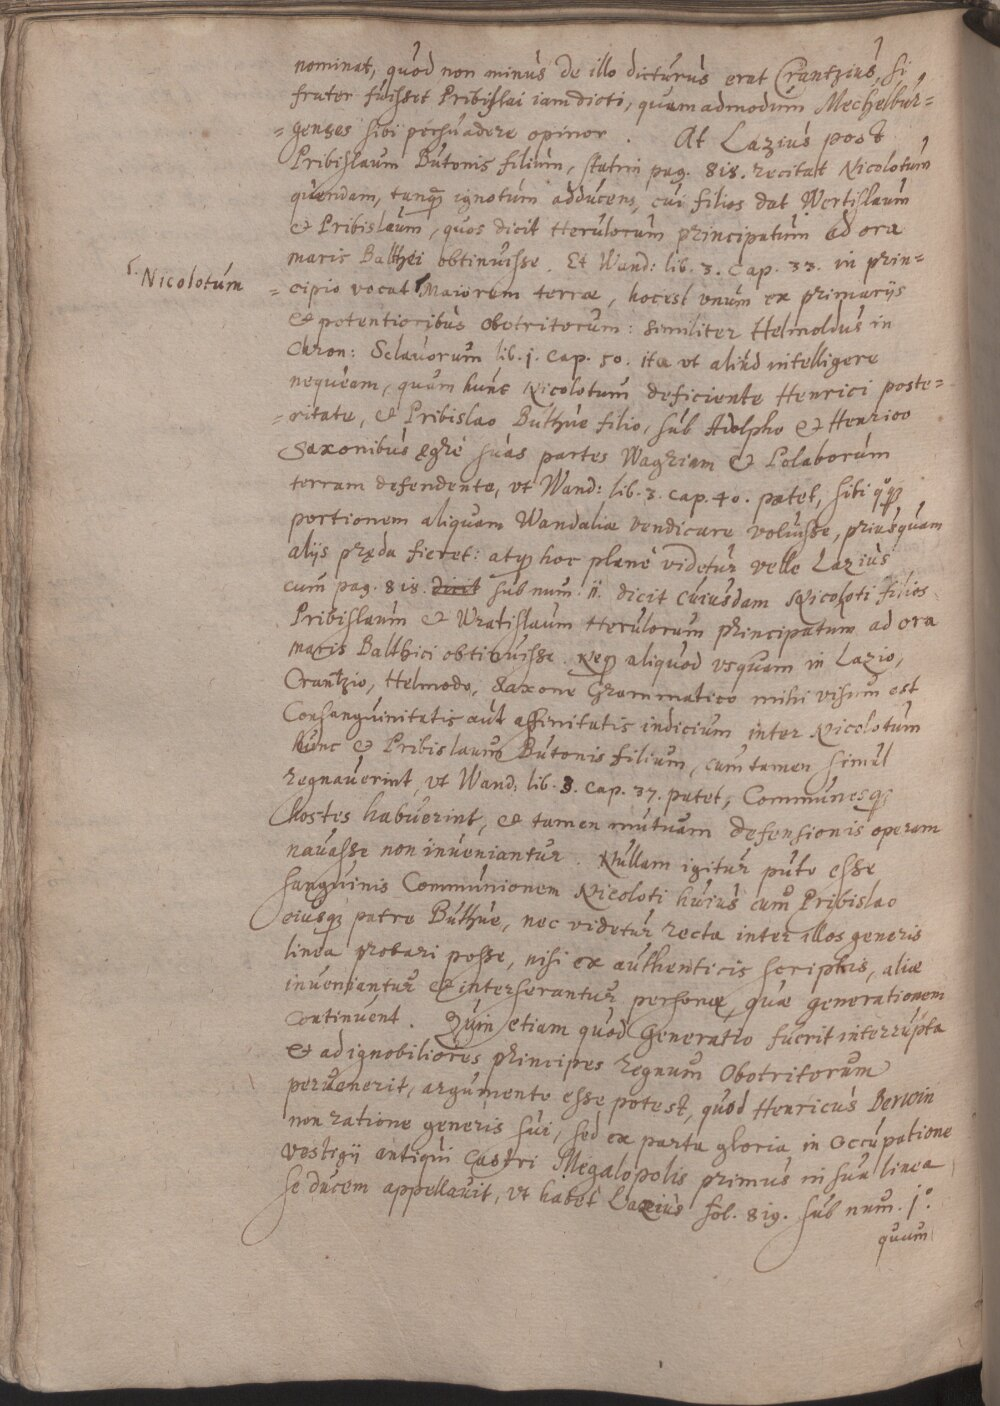 nominat, quòd non minùs de illo dicturus erat Crantzius, si
frater fuisset Pribislai iam dicti, quemadmodum Mechelbur=
=genses sibi persuadere opinor. At Lazius post
Pribislaum Butonis filium, statim pag. 818. recitat Nicolotum
quendam, tanqȝ ignotum adducens, cui filios dat Wertislaum
& Pribislaum, quos dicit Herulorum principatum ad ora
maris Balthei obtinuisse. Et Wand: lib. 3. Cap. 33. in prin=
Γ. Nicolotum
=cipio vocat Γ Maiorem terræ, hocest vnum ex primarijs
& potentioribus Obotritorum: Similiter Helmoldus in
Chron: Sclauorum lib. j. Cap. 50. ita vt aliud intelligere
nequeam, quam hunc Nicolotum deficiente Henrici poste=
=ritate, & Pribislao Buthue filio, sub Adolpho & Henrico
Saxonibus ęgrè suas partes Wagriam & Polaborum
terram defendente, vt Wand: lib. 3. cap. 40. patet, sibi qͦqȝ
portionem aliquam Wandaliæ vendicare voluisse, priusquam
alijs pręda fieret: atqȝ hoc planè videtur velle Lazius
cum pag. 818. dicit sub num: ii. dicit cuiusdam Nicoloti filios
Pribislaum & Wratislaum Herulorum principatum ad ora
maris Balthici obtinuisse. Neqȝ aliquod vsquam in Lazio,
Crantzio, Helmodo, Saxone Grammatico mihi visum est
Consanguinitatis aut affinitatis indicium inter Nicolotum
hunc & Pribislaum Butonis filium, cum tamen simul
regnauerint, vt Wand: lib. 3. Cap. 37. patet, Communesqȝ
hostes habuerint, & tamen mutuam defensionis operam
nauasse non inueniantur. Nullam igitur puto esse
sanguinis Communionem Nicoloti huius cum Pribislao
eiusqȝ patre Buthue, nec videtur recta inter illos generis
linea probari posse, nisi ex authenticis scriptis, aliæ
inueniantur & interserantur personæ, quæ generationem
continuent. Quin etiam quòd Generatio fuerit interrupta
& ad ignobiliores principes regnum Obotritorum
peruenerit, argumento esse potest, quòd Henricus Berwin
non ratione generis sui, sed ex parta gloria in occupatione
vestigij antiqui Castri Megalopolis primus in sua linea
se ducem appellauit, vt habet Lazius fol. 819. sub num. jͦ.
quum